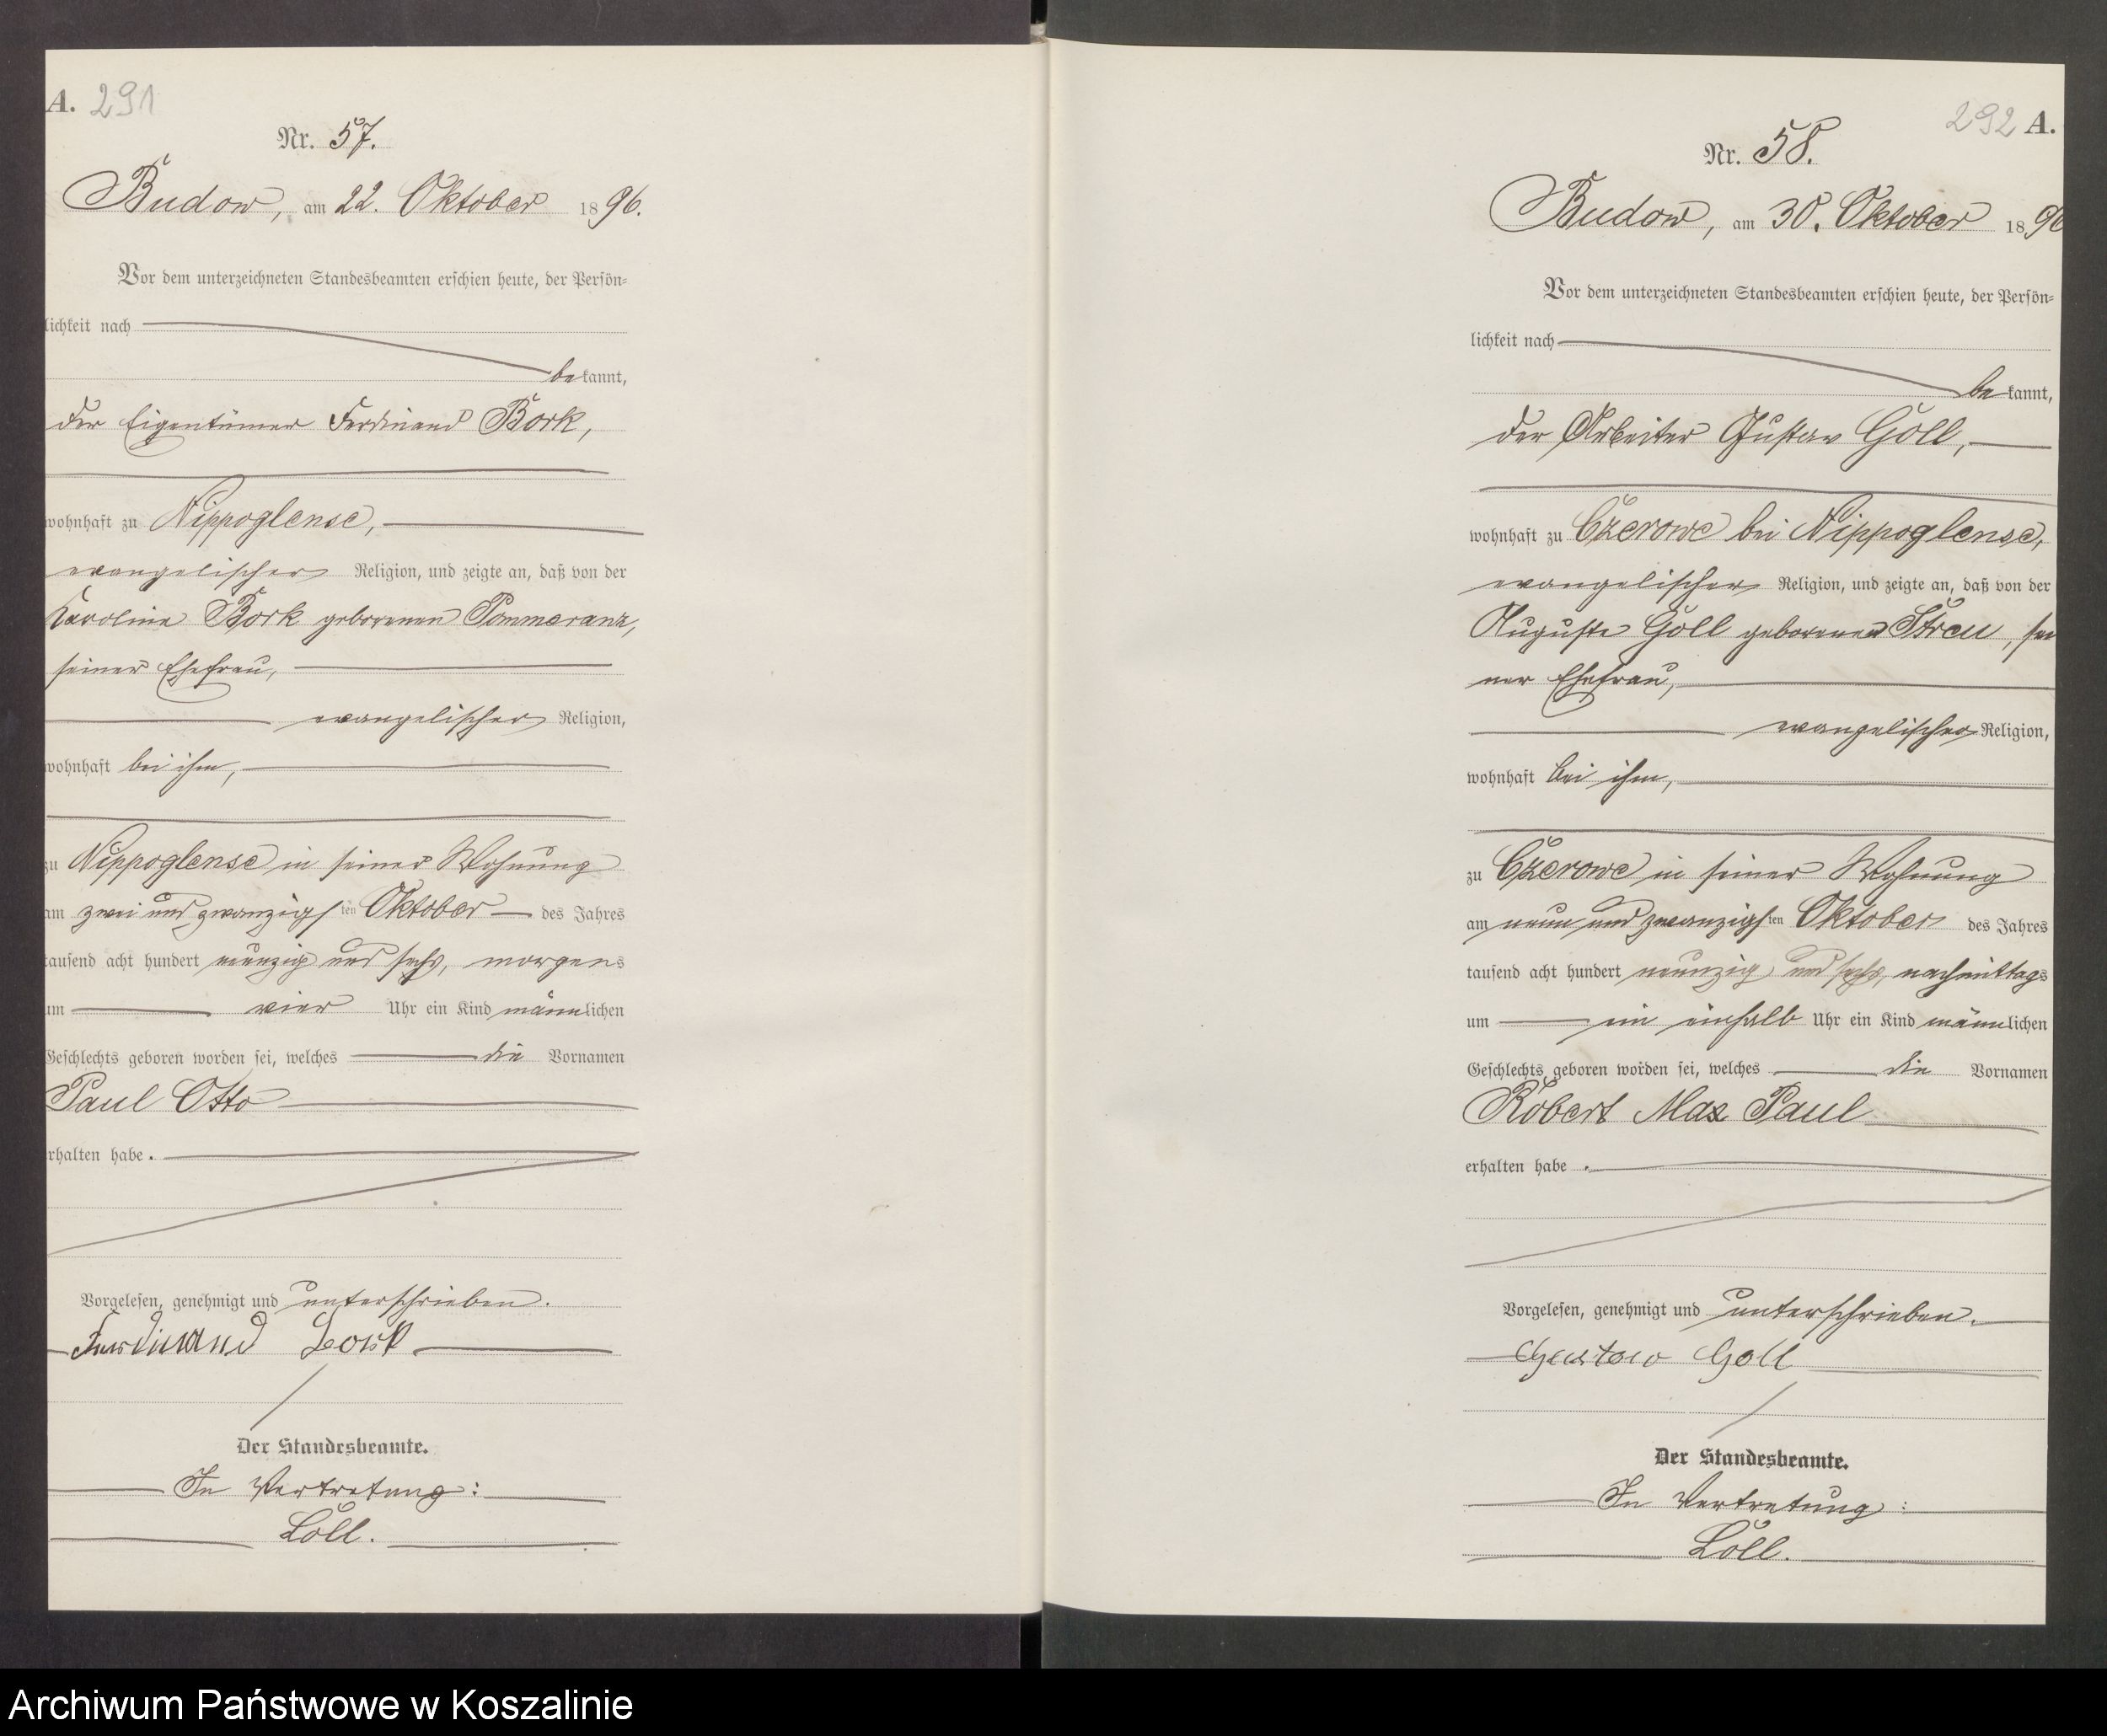 A. 291
Nr. 57.
Budow, am 22. Oktober 1896.
Vor dem unterzeichneten Standesbeamten erschien heute, der Persön-
lichkeit nach
bekannt,
der Eigentümer Ferdinand Bork,
wohnhaft zu Nippoglense,
evangelischer Religion, und zeigte an, daß von der
Karoline Bork geborenen Pommeranz,
seiner Ehefrau,
evangelischer Religion,
wohnhaft bei ihm,
zu Nippoglense in seiner Wohnung
am zwei und zwanzigsten Oktober des Jahres
tausend acht hundert neunzig und sechs, morgens
um vier Uhr ein Kind männlichen
Geschlechts geboren worden sei, welches die Vornamen
Paul Otto
erhalten habe.
Vorgelesen, genehmigt und unterschrieben.
Ferdinand Bork
Der Standesbeamte.
In Vertretung:
Löll.
292 A.
Nr. 58.
Budow, am 30. Oktober 1896
Vor dem unterzeichneten Standesbeamten erschien heute, der Persön-
lichkeit nach
bekannt,
der Arbeiter Gustav Göll,
wohnhaft zu Czerowe bei Nippoglense,
evangelischer Religion, und zeigte an, daß von der
Auguste Göll geborenen Streu, sei
ner Ehefrau,
evangelischer Religion,
wohnhaft bei ihm,
zu Czerowe in seiner Wohnung
am neun und zwanzigsten Oktober des Jahres
tausend acht hundert neunzig und sechs, nachmittags
um ein einhalb Uhr ein Kind männlichen
Geschlechts geboren worden sei, welches die Vornamen
Robert Max Paul
erhalten habe.
Vorgelesen, genehmigt und unterschrieben.
Gustav Goll
Der Standesbeamte.
In Vertretung:
Löll.
Archiwum Państwowe w Koszalinie